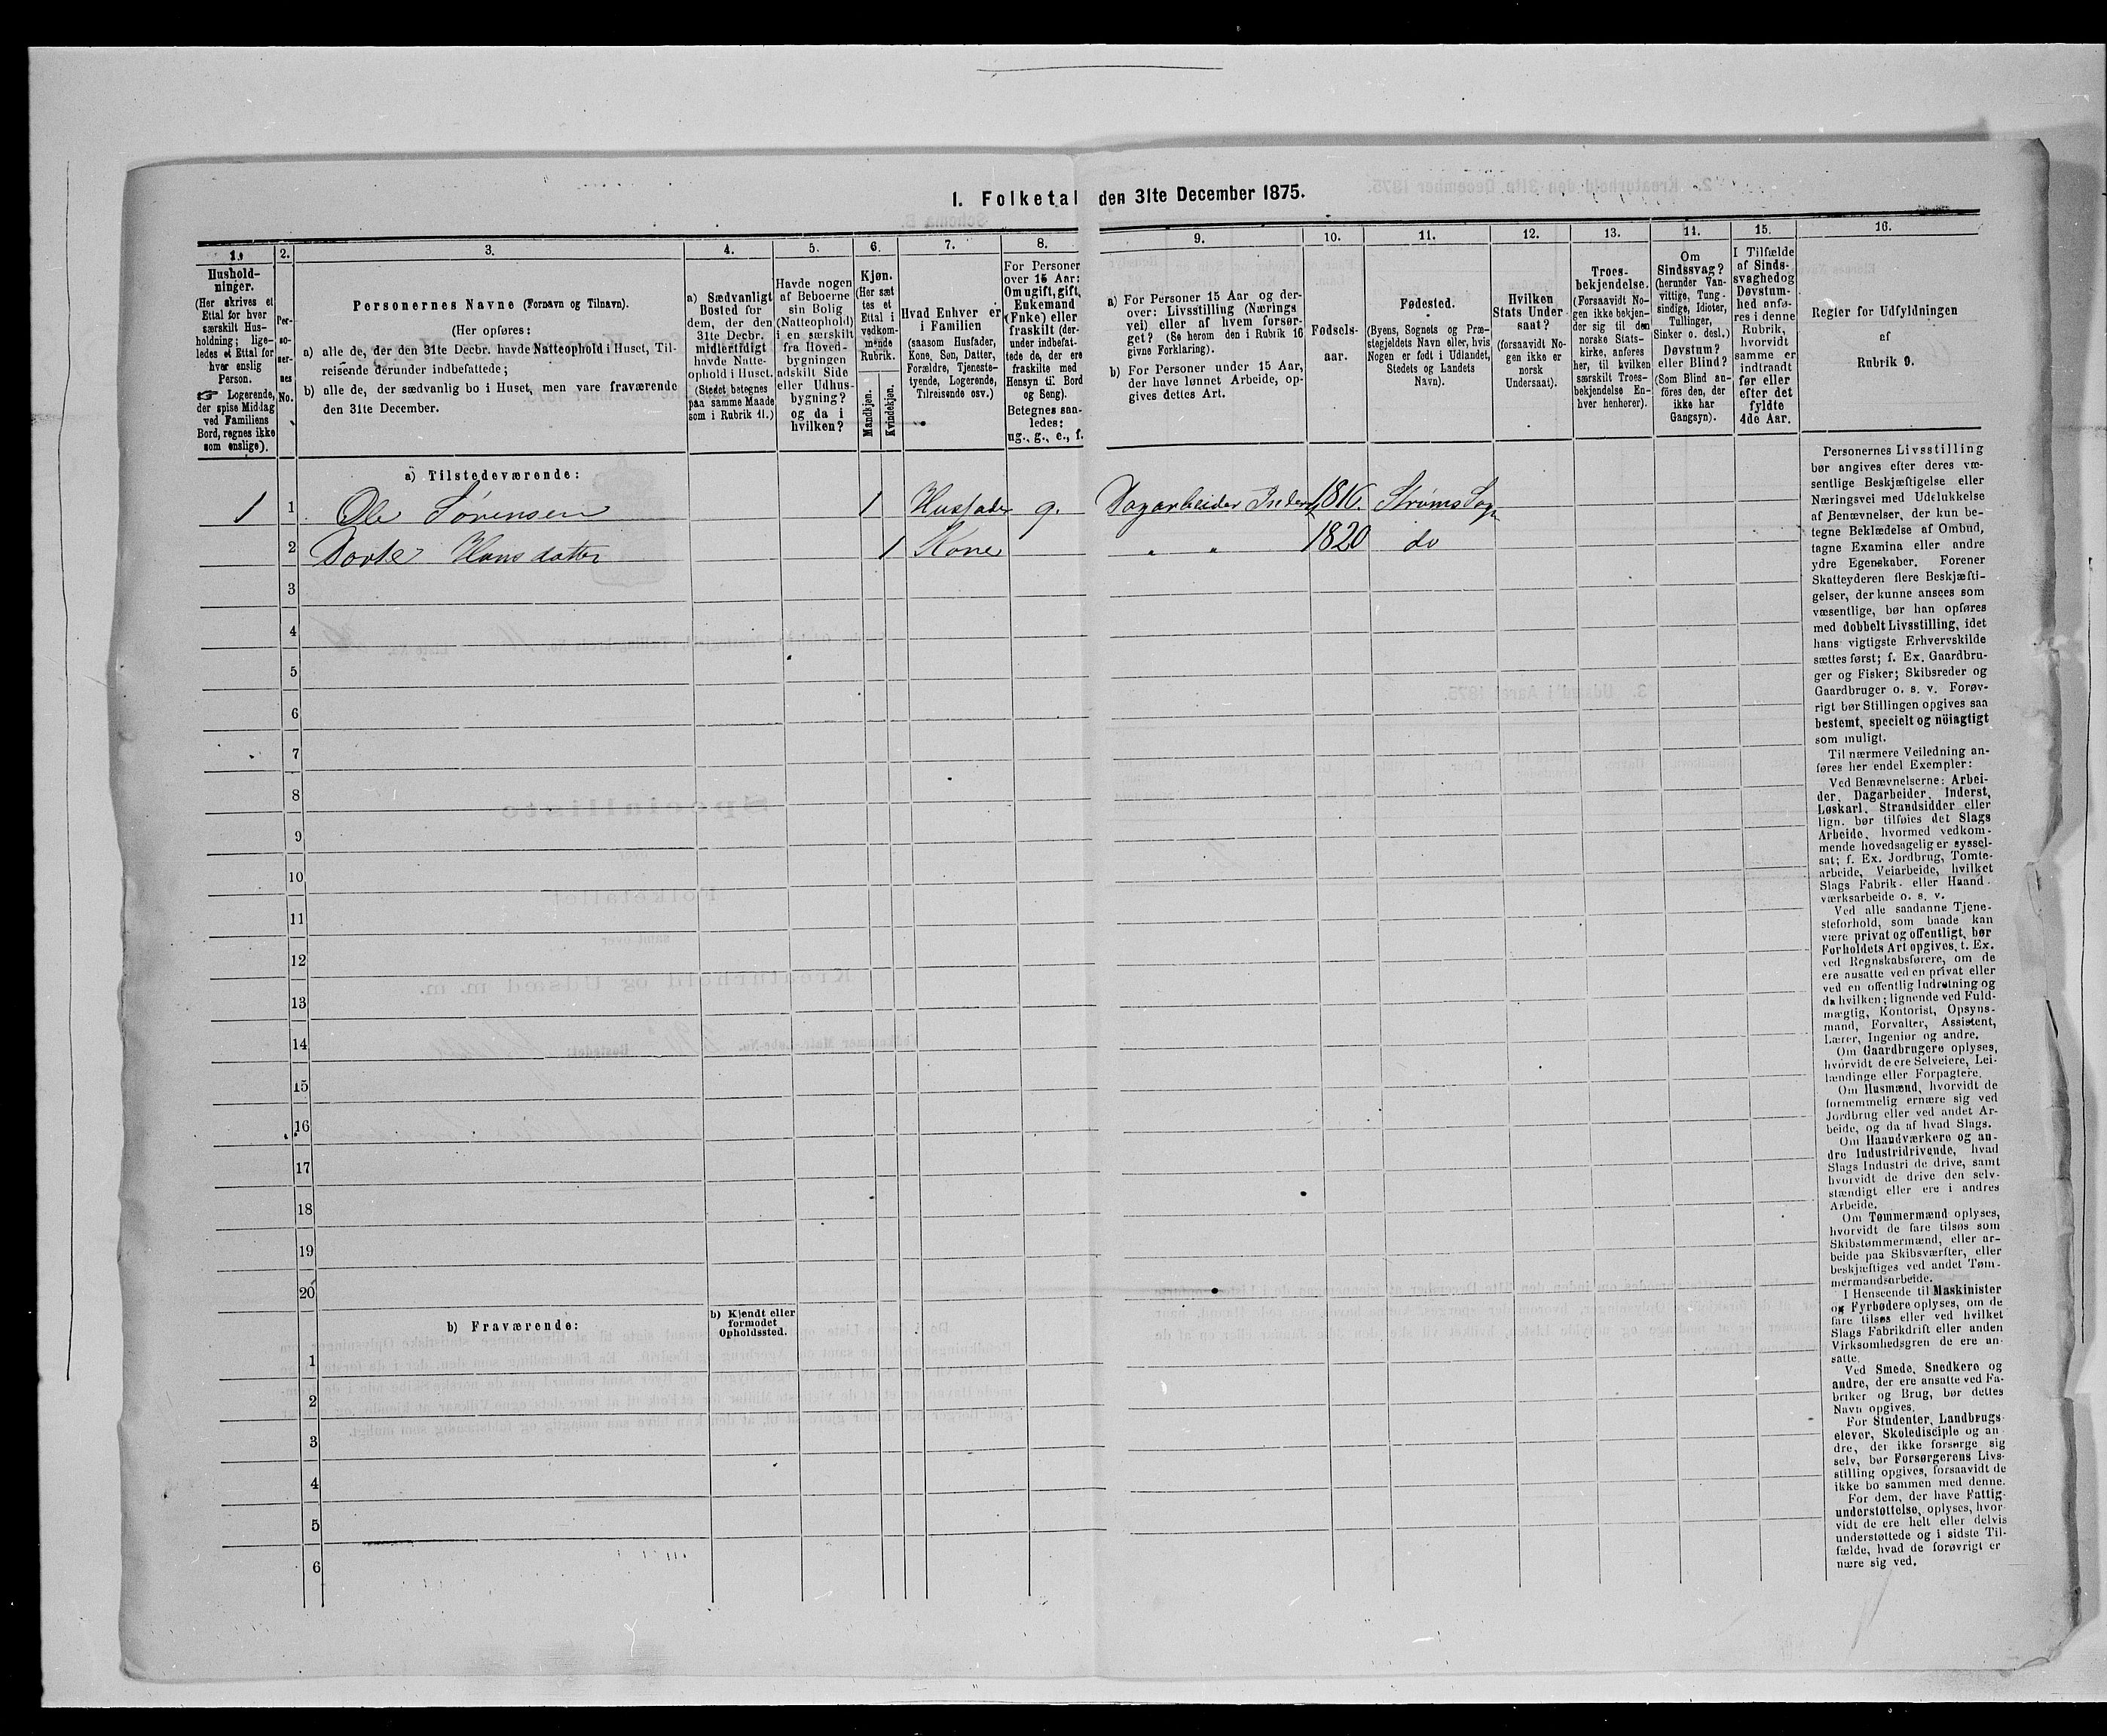 1. Folketal den 31te December 1875.
1.
Hushold-
ninger.
(Her skrives et
Ettal for hver
særskilt Hus-
holdning; lige-
ledes et Ettal for
hver enslig
Person.
☞ Logerende,
der spise Middag
ved Familiens
Bord, regnes ikke
som enslige).
2.
Per-
so-
ner-
nes
No.
3.
Personernes Navne (Fornavn og Tilnavn).
(Her opføres:
a) alle de, der den 31te Decbr. havde Natteophold i Huset, Til-
reisende derunder indbefattede;
b) alle de, der sædvanlig bo i Huset, men vare fraværende
den 31te December.
4.
a) Sædvanligt
Bosted for
dem, der den
31te Decbr.
midlertidigt
havde Natte-
ophold i Huset.
(Stedet betegnes
paa samme Maade
som i Rubrik 11.)
5.
Havde nogen
af Beboerne
sin Bolig
(Natteophold)
i en særskilt
fra Hoved-
bygningen
adskilt Side
eller Udhus-
bygning?
og da i
hvilken?
6.
Kjøn.
(Her sæt
tes et
Ettal i
vedkom-
mende
Rubrik.
Mandkjøn.
Kvindekjøn.
7.
Hvad Enhver er
i Familien
(saasom Husfader,
Kone, Søn, Datter,
Forældre, Tjeneste-
tyende, Logerende,
Tilreisende osv.)
8.
For Personer
over 15 Aar:
Om ugift, gift,
Enkemand
(Enke) eller
fraskilt (der-
under indbefat-
tede de, der ere
fraskilte med
Hensyn til Bord
og Seng).
Betegnes saa-
ledes:
ug., g., e., f.
9.
a) For Personer 15 Aar og der-
over: Livsstilling (Nærings
vei) eller af hvem forsør-
get? (Se herom den i Rubrik 16
givne Forklaring).
b) For Personer under 15 Aar,
der have lønnet Arbeide, op-
gives dettes Art.
10.
Fødsels-
aar.
11.
Fødested.
(Byens, Sognets og Præ-
stegjeldets Navn eller, hvis
Nogen er født i Udlandet,
Stedets og Landets
Navn).
12.
Hvilken
Stats Under
saat?
(forsaavidt No-
gen ikke er
norsk
Undersaat).
13.
Troes-
bekjendelse.
(Forsaavidt No-
gen ikke bekjen-
der sig til den
norske Stats-
kirke, anføres
her, til hvilken
særskilt Troes-
bekjendelse En-
hver henhører).
14.
Om
Sindssvag?
(herunder Van-
vittige, Tung-
sindige, Idioter,
Tullinger,
Sinker o. desl.)
Døvstum?
eller Blind?
(Som Blind an-
føres den, der
ikke har
Gangsyn).
15.
I Tilfælde
af Sinds-
svaghed og
Døvstum-
hed anfø-
res i denne
Rubrik,
hvorvidt
samme er
indtraadt
før eller
efter det
fyldte
4de Aar.
16.
Regler for Udfyldningen
af
Rubrik 9.
a) Tilstedeværende:
1 1 Ole Sørensen 1 Husfader g. Dagarbeider Inderst 1816. Strøms Sogn
2 Dorte Hansdatter 1 Kone " " 1820 do
3
4
5
6
7
8
9
10
11
12
13
14
15
16
17
18
19
20
b) Fraværende:
b) Kjendt eller
formodet
Opholdssted.
1
2
3
4
5
6
Personernes Livsstilling
bør angives efter deres væ-
sentlige Beskjæftigelse eller
Næringsvei med Udelukkelse
af Benævnelser, der kun be-
tegne Beklædelse af Ombud,
tagne Examina eller andre
ydre Egenskaber. Forener
Skatteyderen flere Beskjæfti-
gelser, der kunne ansees som
væsentlige, bør han opføres
med dobbelt Livsstilling, idet
hans vigtigste Erhvervskilde
sættes først; f. Ex. Gaardbru-
ger og Fisker; Skibsreder og
Gaardbruger o. s. v. Forøv-
rigt bør Stillingen opgives saa
bestemt, specielt og nöiagtigt
som muligt.
Til nærmere Veiledning an-
føres her endel Exempler:
Ved Benævnelserne: Arbei-
der, Dagarbeider, Inderst,
Løskarl, Strandsidder eller
lign. bør tilføies det Slags
Arbeide, hvormed vedkom-
mende hovedsagelig er syssel-
sat; f. Ex. Jordbrug, Tomte-
arbeide, Veiarbeide, hvilket
Slags Fabrik- eller Haand-
værksarbeide o. s. v.
Ved alle saadanne Tjene-
steforhold, som baade kan
være privat og offentligt, bør
Forholdets Art opgives, t. Ex.
ved Regnskabsførere, om de
ere ansatte ved en privat eller
ved en offentlig Indretning og
da hvilken; lignende ved Fuld-
mægtig, Kontorist, Opsyns-
mand, Forvalter, Assistent,
Lærer, Ingeniør og andre.
Om Gaardbrugere oplyses,
hvorvidt de ere Selveiere, Lei-
lændinge eller Forpagtere.
Om Husmænd, hvorvidt de
fornemmelig ernære sig ved
Jordbrug eller ved andet Ar-
beide, og da af hvad Slags.
Om Haandværkere og an-
dre Industridrivende, hvad
Slags Industri de drive, samt
hvorvidt de drive den selv-
stændigt eller ere i andres
Arbeide.
Om Tømmermænd oplyses,
hvorvidt de fare tilsøs som
Skibstømmermænd, eller ar-
beide paa Skibsværfter, eller
beskjæftiges ved andet Tøm-
mermandsarbeide.
I Henseende til Maskinister
og Fyrbødere oplyses, om de
fare tilsøs eller ved hvilket
Slags Fabrikdrift eller anden
Virksomhedsgren de ere an-
satte.
Ved Smede, Snedkere og
andre, der ere ansatte ved Fa-
briker og Brug, bør dettes
Navn opgives.
For Studenter, Landbrugs-
elever, Skoledisciple og an-
dre, der ikke forsørge sig
selv, bør Forsørgerens Livs-
stilling opgives, forsaavidt de
ikke bo sammen med denne.
For dem, der have Fattig-
understøttelse, oplyses, hvor-
vidt de ere helt eller delvis
understøttede og i sidste Til-
fælde, hvad de forøvrigt er
nære sig ved.